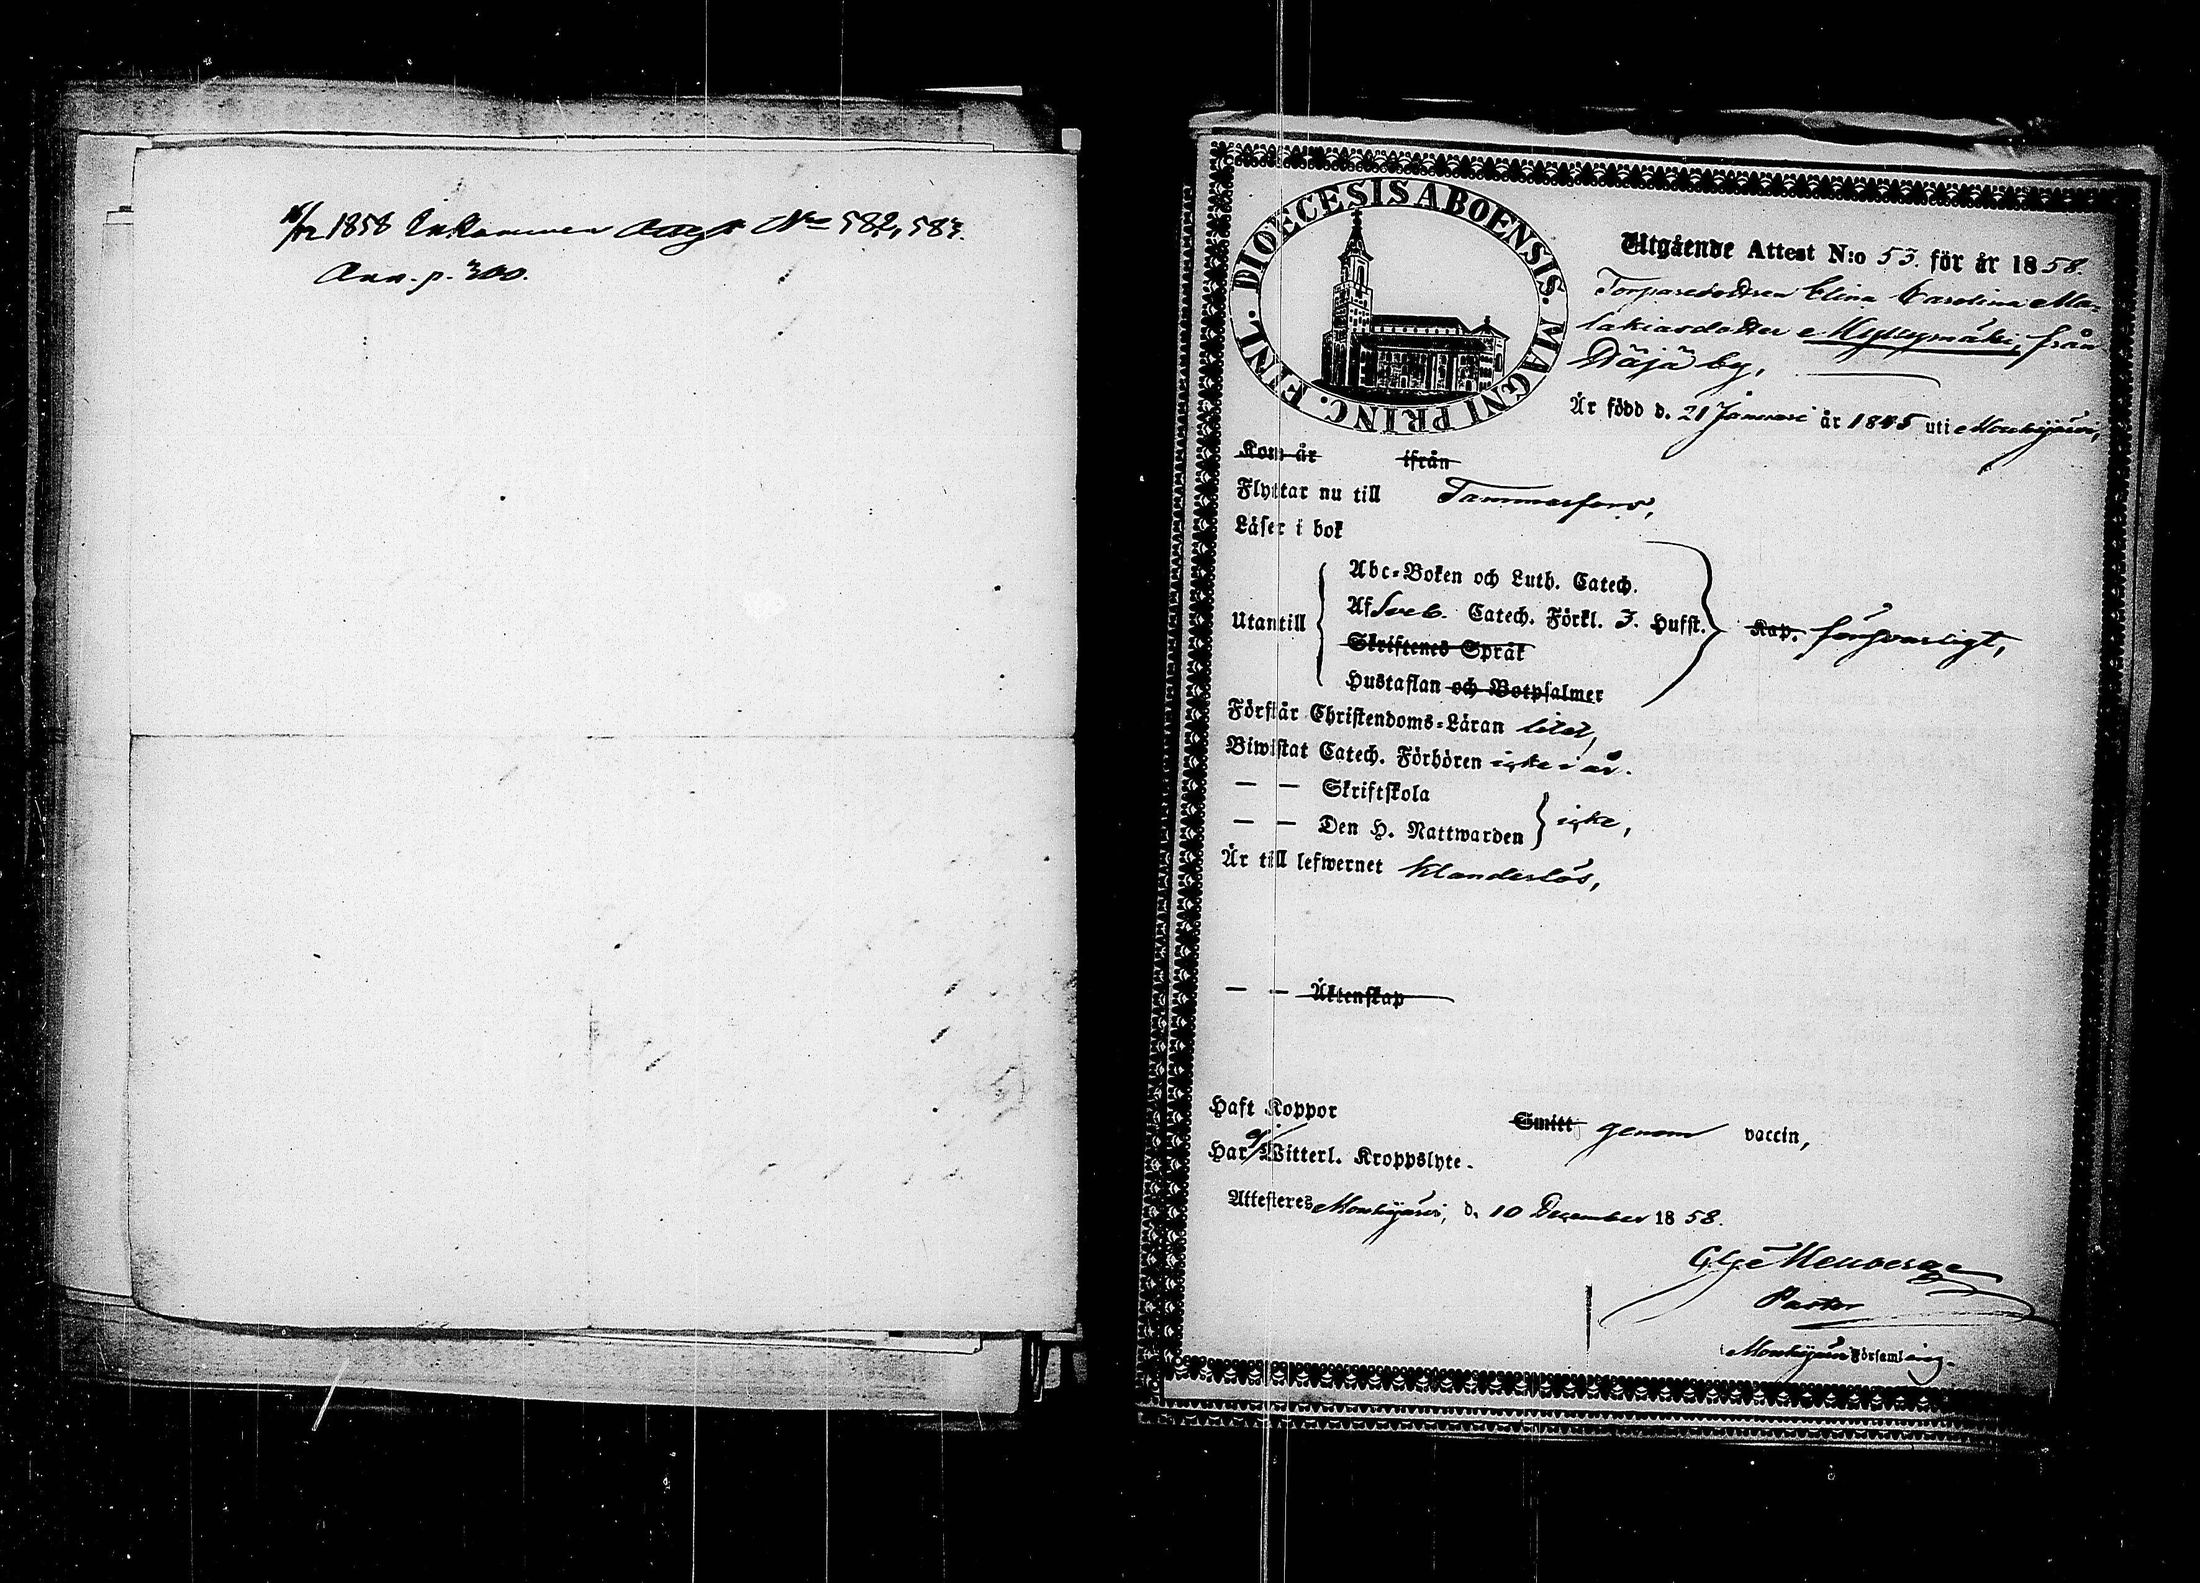 1858 Inkommen Nro 582, 583.
Ann. p. 300.
DIOECESIS ABOENSIS. MAGNI PRINC. FINL.
Utgående Attest N:o 53. för år 1858.
Torparedottren Elina Carolina Ma-
lakiasdotter Myllymäki, från
by,
Är född d. 21 Januari år 1845 uti Mouhijärvi,
Kom år ifrån
Flyttar nu till Tammerfors,
Läser i bok
Abc-Boken och Luth. Catech.
Utantill Af Sveb. Catech. Förkl. 3. Hufst. Kap. försvarligt,
Skriftenes Språk
Hustaflan och Botpsalmer
Förstår Christendoms-Läran litet,
Biwistat Catech. Förhören icke i år.
— — Skriftskola
— — Den H. Nattwarden icke,
Är till lefwernet klanderlös,
— — Äktenskap
Haft Koppor Smitt genom vaccin,
Har ej Witterl. Kroppslyte.
Attesteres Mouhijärvi, d. 10 December 1858.
Pastor
Mouhijärvi Församling.